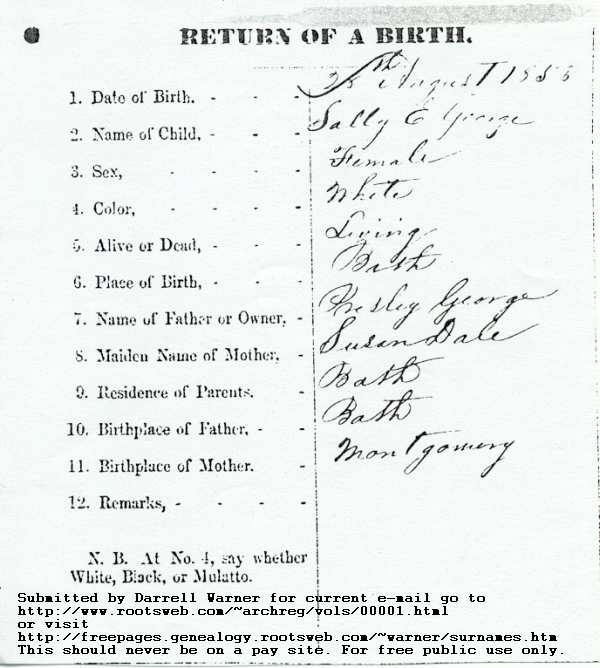 RETURN OF A BIRTH.
1. Date of Birth. - - - 28th August 1856
2. Name of Child, - - - Sally E George
3. Sex, - - - - Female
4. Color, - - - - White
5. Alive or Dead, - - - Living
6. Place of Birth, - - - Bath
7. Name of Father or Owner, - Presley George
8. Maiden Name of Mother, - Susan Dale
9. Residence of Parents. - Bath
10. Birthplace of Father, - - Bath
11. Birthplace of Mother. - Montgomery
12. Remarks, - - - -
N. B. At No. 4, say whether
White, Black, or Mulatto.
Submitted by Darrell Warner for current e-mail go to
http://www.rootsweb.com/~archreg/vols/00001.html
or visit
http://freepages.genealogy.rootsweb.com/~warner/surnames.htm
This should never be on a pay site. For free public use only.